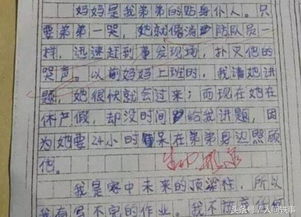 妈妈是我弟弟的贴身仆人。只
要弟弟一哭，她就像消防队员一
样，迅速赶到事发现场，扑灭他的
哭声。以前妈妈上班时，我请她讲
题，她很快就会过来；而现在她在
休产假，却没时间给我讲题，因
为她要24小时呆在弟弟身边照顾
他。
我是家中未来的顶梁柱，所以
我有写不完的作业，我不
头条号